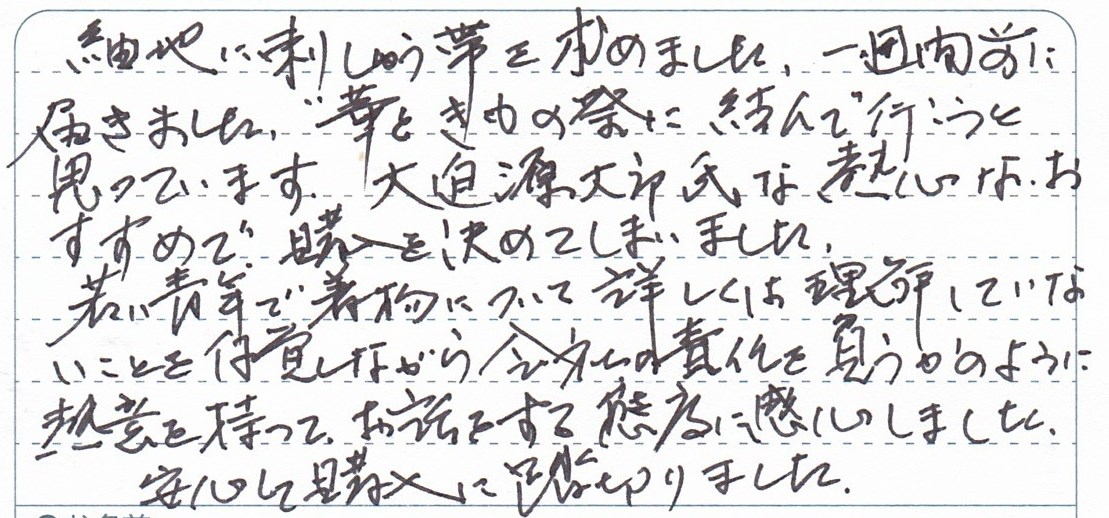 紬地に刺しゅう帯を求めました、一週間前に
届きました、"華ときものの祭に結んで行こうと
思っています。大迫源太郎氏な熱心な、お
すすめで、購入を決めてしまいました。
若い青年で着物について詳しくは理解していな
いことを自覚しながら会社の責任を負うかのように
熱意を持って、お話をする態度に感心しました、
安心して購入に踏切りました。